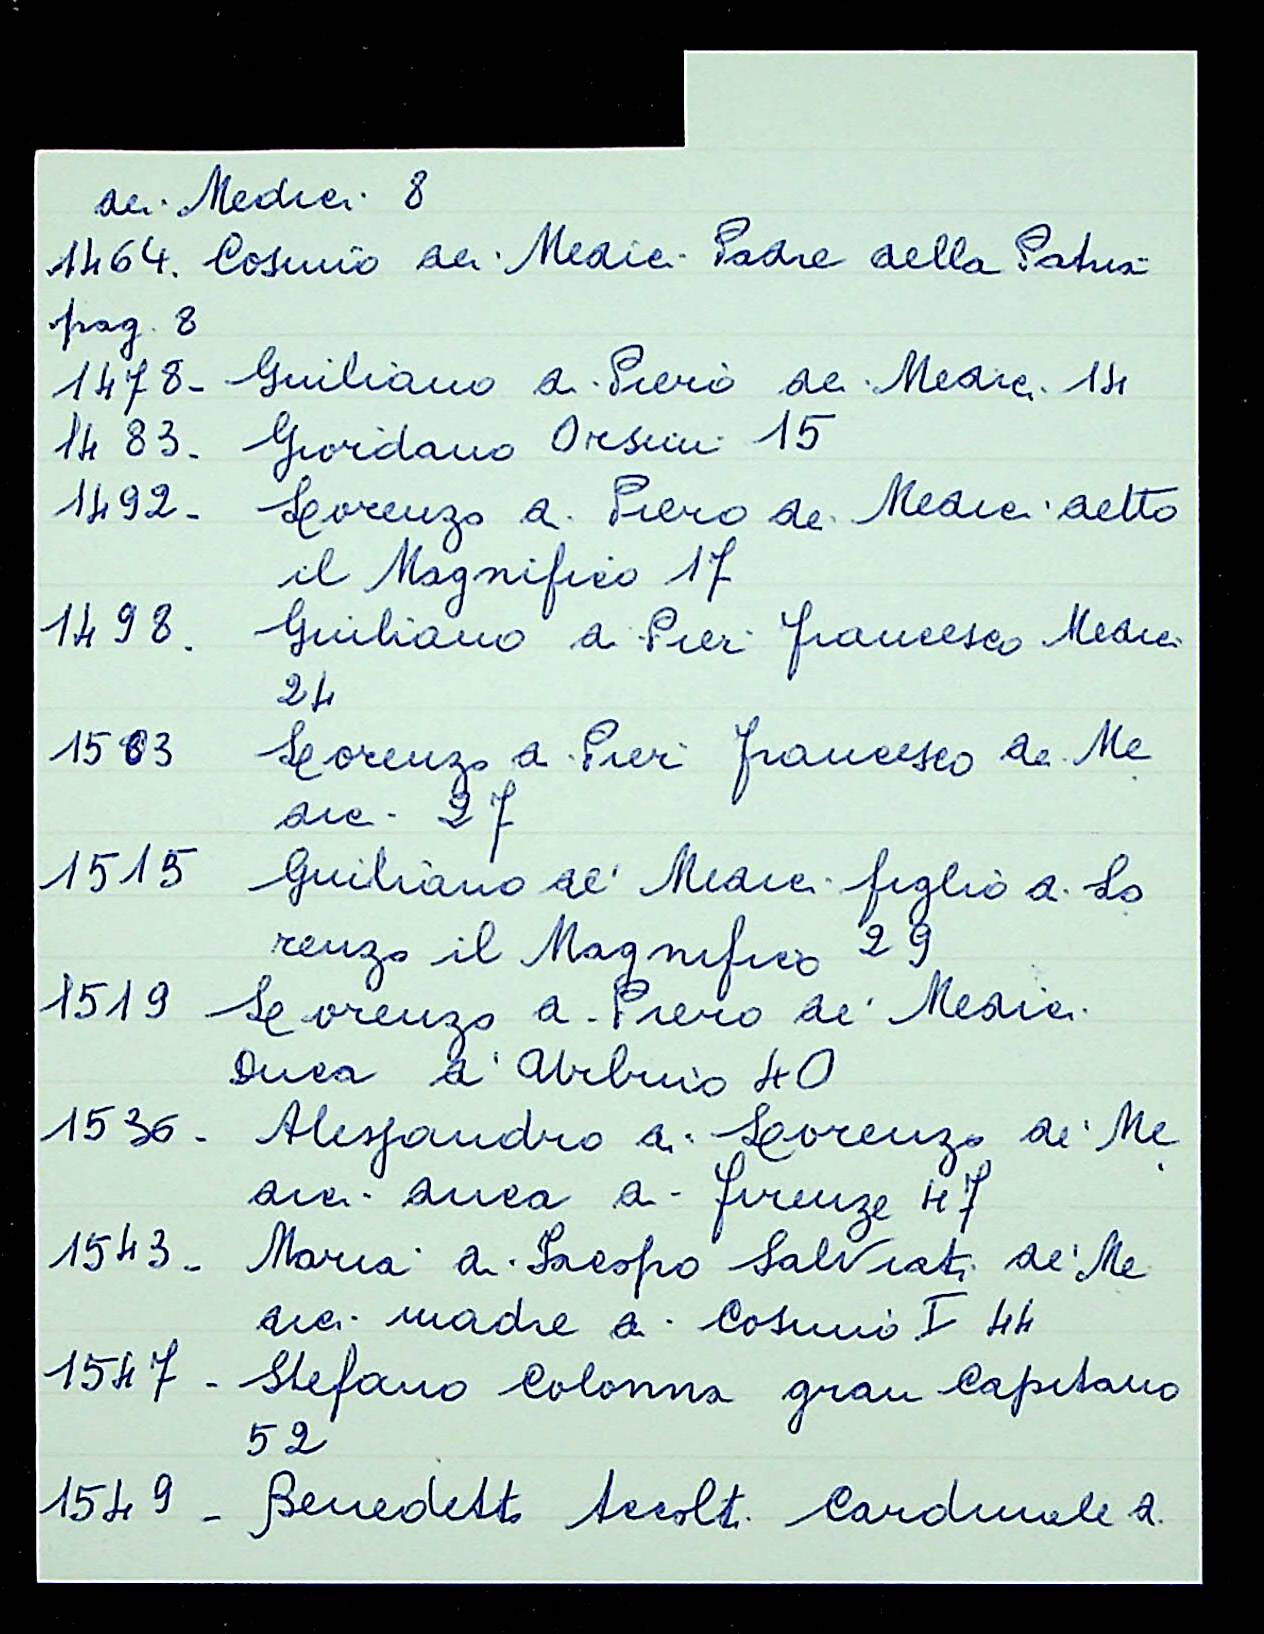 dei Medici 8
1464. Cosimo dei Medici Padre della Patria
pag. 8
1478- Giuliano di Piero dei Medici 14
1483- Giordano Orsini 15
1492- Lorenzo di Piero dei Medici detto
il Magnifico 17
1498. Giuliano di Pier Francesco Medici
24
1503 Lorenzo di Pier Francesco de Me
dici 27
1515 Giuliano de' Medici figlio di Lo
renzo il Magnifico 29
1519 Lorenzo di Piero de' Medici
Duca d'Urbino 40
1536- Alessandro di Lorenzo de' Me
dici duca di Firenze 47
1543- Maria di Jacopo Salviati de' Me
dici madre di Cosimo I 44
1547- Stefano Colonna gran Capitano
52
1549- Benedetto Accolti Cardinale di